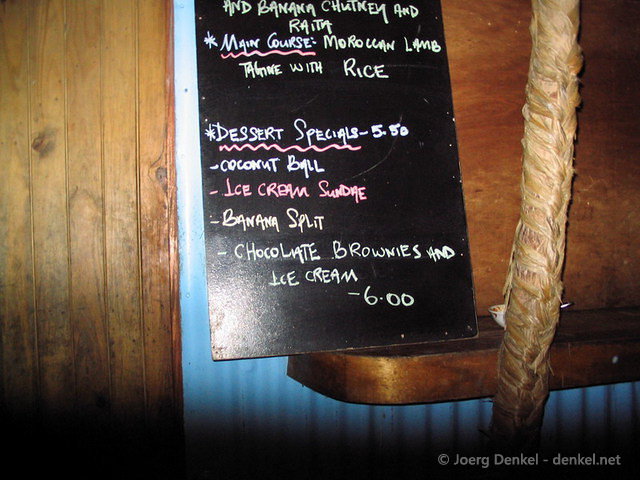 AND BANANA CHUTNEY AND
RAITA
* MAIN COURSE:- MOROCCAN LAMB
TAGINE WITH RICE
* DESSERT SPECIALS - 5.50
- COCONUT BALL
- ICE CREAM SUNDAE
- BANANA SPLIT
- CHOCOLATE BROWNIES AND
ICE CREAM
- 6.00
© Joerg Denkel - denkel.net